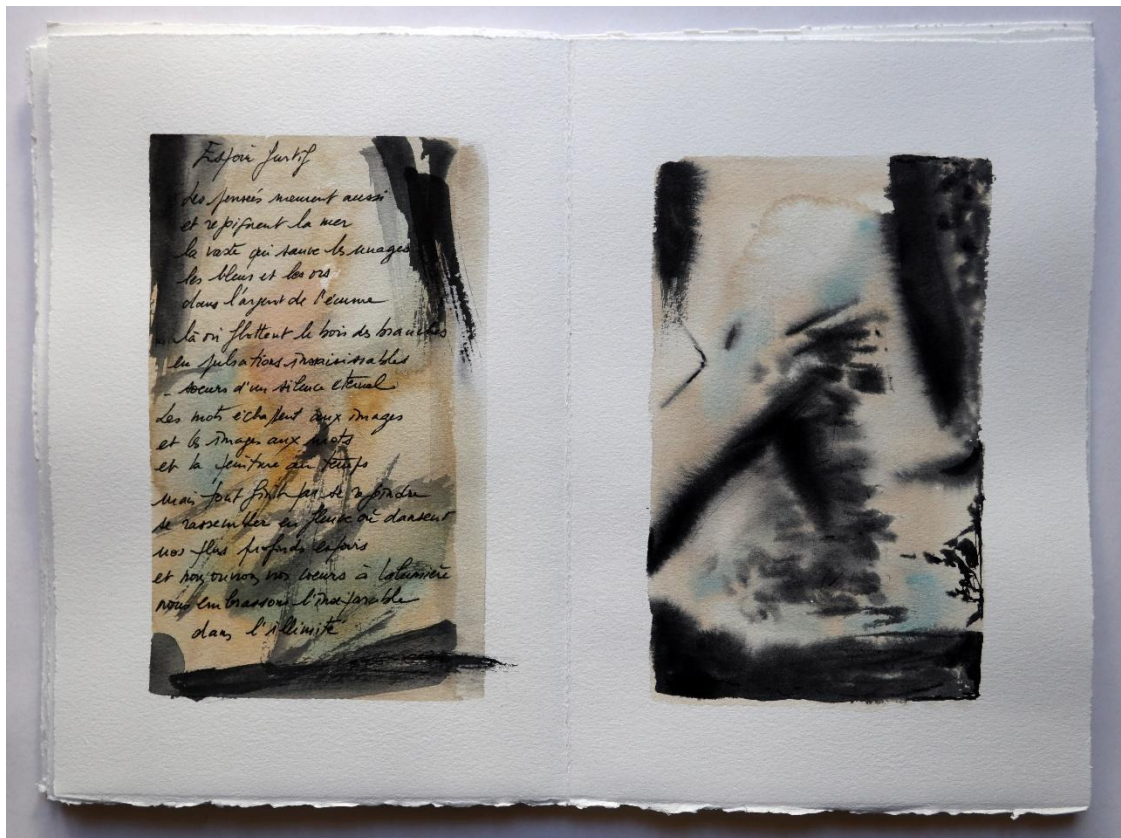 Espoir furtif
Les pensées meurent aussi
et rejoignent la mer
la vaste qui sauve les nuages
les bleus et les ors
dans l'argent de l'écume
là où flottent le bois des branches
en pulsations insaisissables
soeurs d'un silence éternel
Les mots échappent aux images
et les images aux mots
et la peinture au temps
mais tout finit par se rejoindre
se rassembler en fleuve où dansent
nos plus profonds espoirs
et nous ouvrons nos coeurs à la lumière
nous embrassons
dans l'illimité